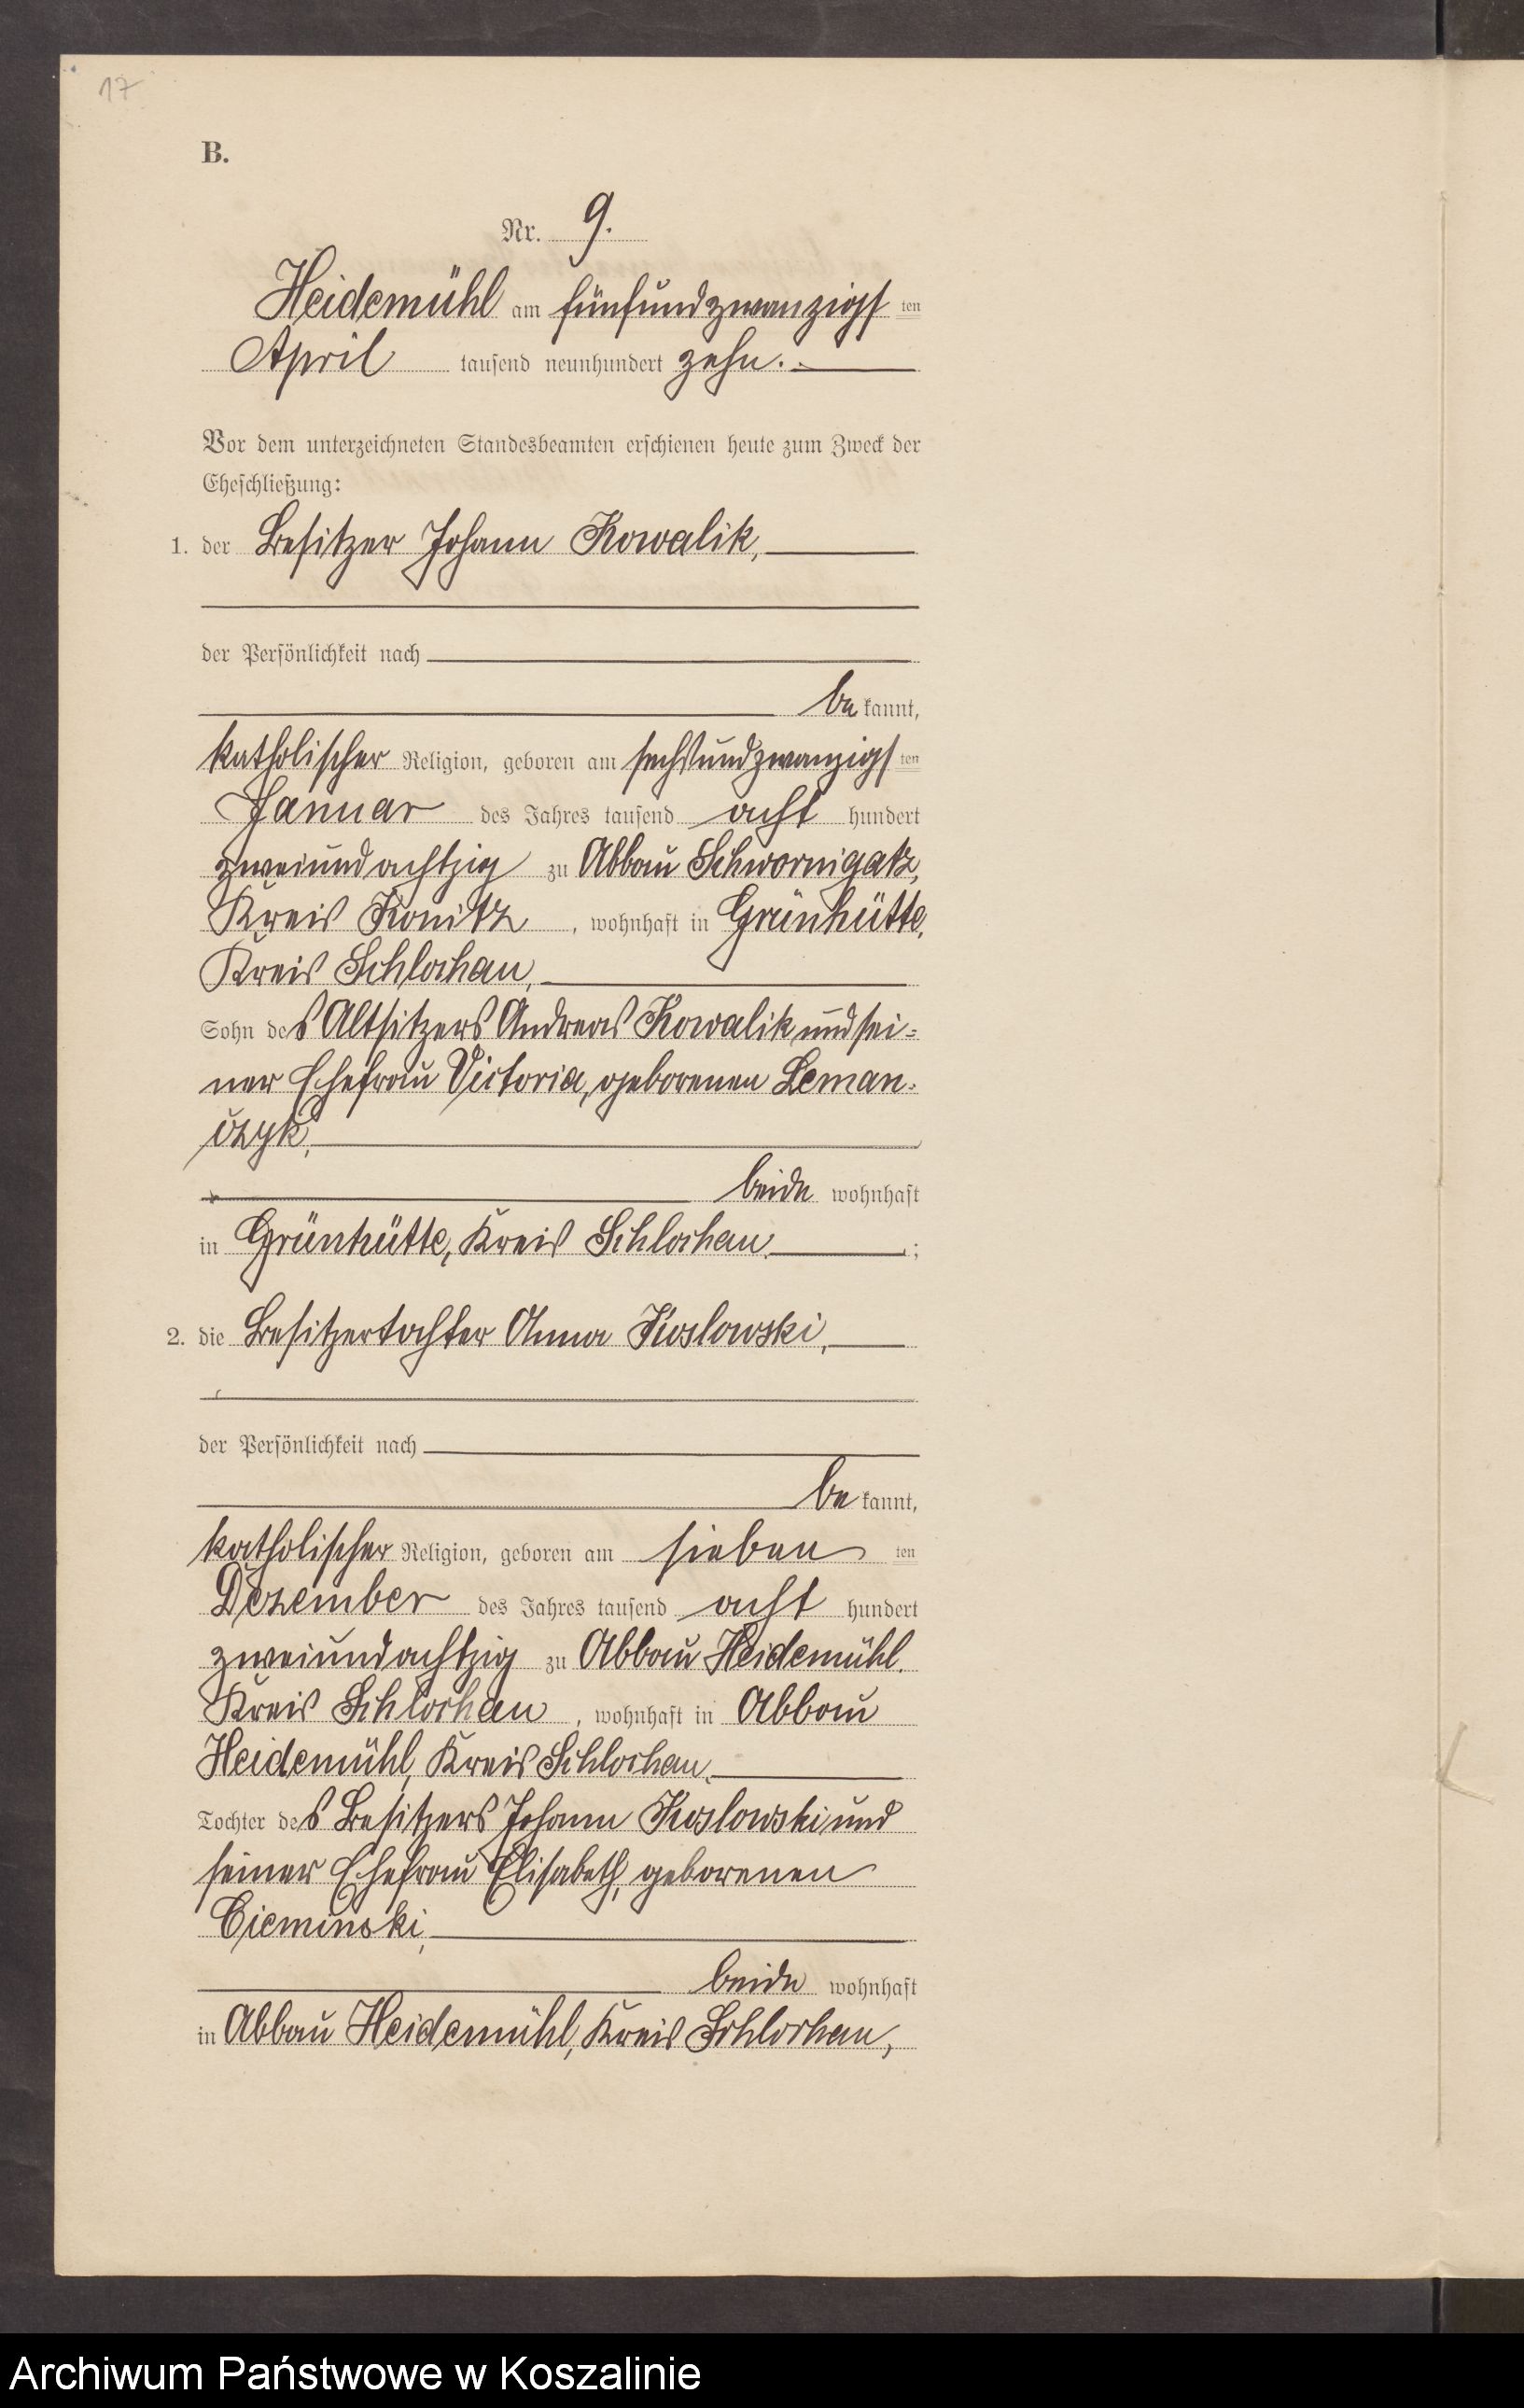 17
B.
Nr. 9.
Heidemühl am fünfundzwanzigs ten
April tausend neunhundert zehn.
Vor dem unterzeichneten Standesbeamten erschienen heute zum Zweck der
Eheschließung:
1. der Besitzer Johann Kowalik,
der Persönlichkeit nach
be kannt,
katholischer Religion, geboren am sechsundzwanzigs ten
Januar des Jahres tausend acht hundert
zweiundachtzig zu Abbau Schwornigatz,
Kreis Konitz, wohnhaft in Grünhütte,
Kreis Schlochau,
Sohn des Altsitzers Andreas Kowalik und sei=
ner Ehefrau Victoria, geborenen Leman=
czyk,
beide wohnhaft
in Grünhütte, Kreis Schlochau. ;
2. die Besitzertochter Anna Koslowski,
der Persönlichkeit nach
be kannt,
katholischer Religion, geboren am sieben ten
Dezember des Jahres tausend acht hundert
zweiundachtzig zu Abbau Heidemühl.
Kreis Schlochau, wohnhaft in Abbau
Heidemühl, Kreis Schlochau,
Tochter des Besitzers Johann Koslowski und
seiner Ehefrau Elisabeth, geborenen
Cieminski,
beide wohnhaft
in Abbau Heidemühl, Kreis Schlochau,
Archiwum Państwowe w Koszalinie